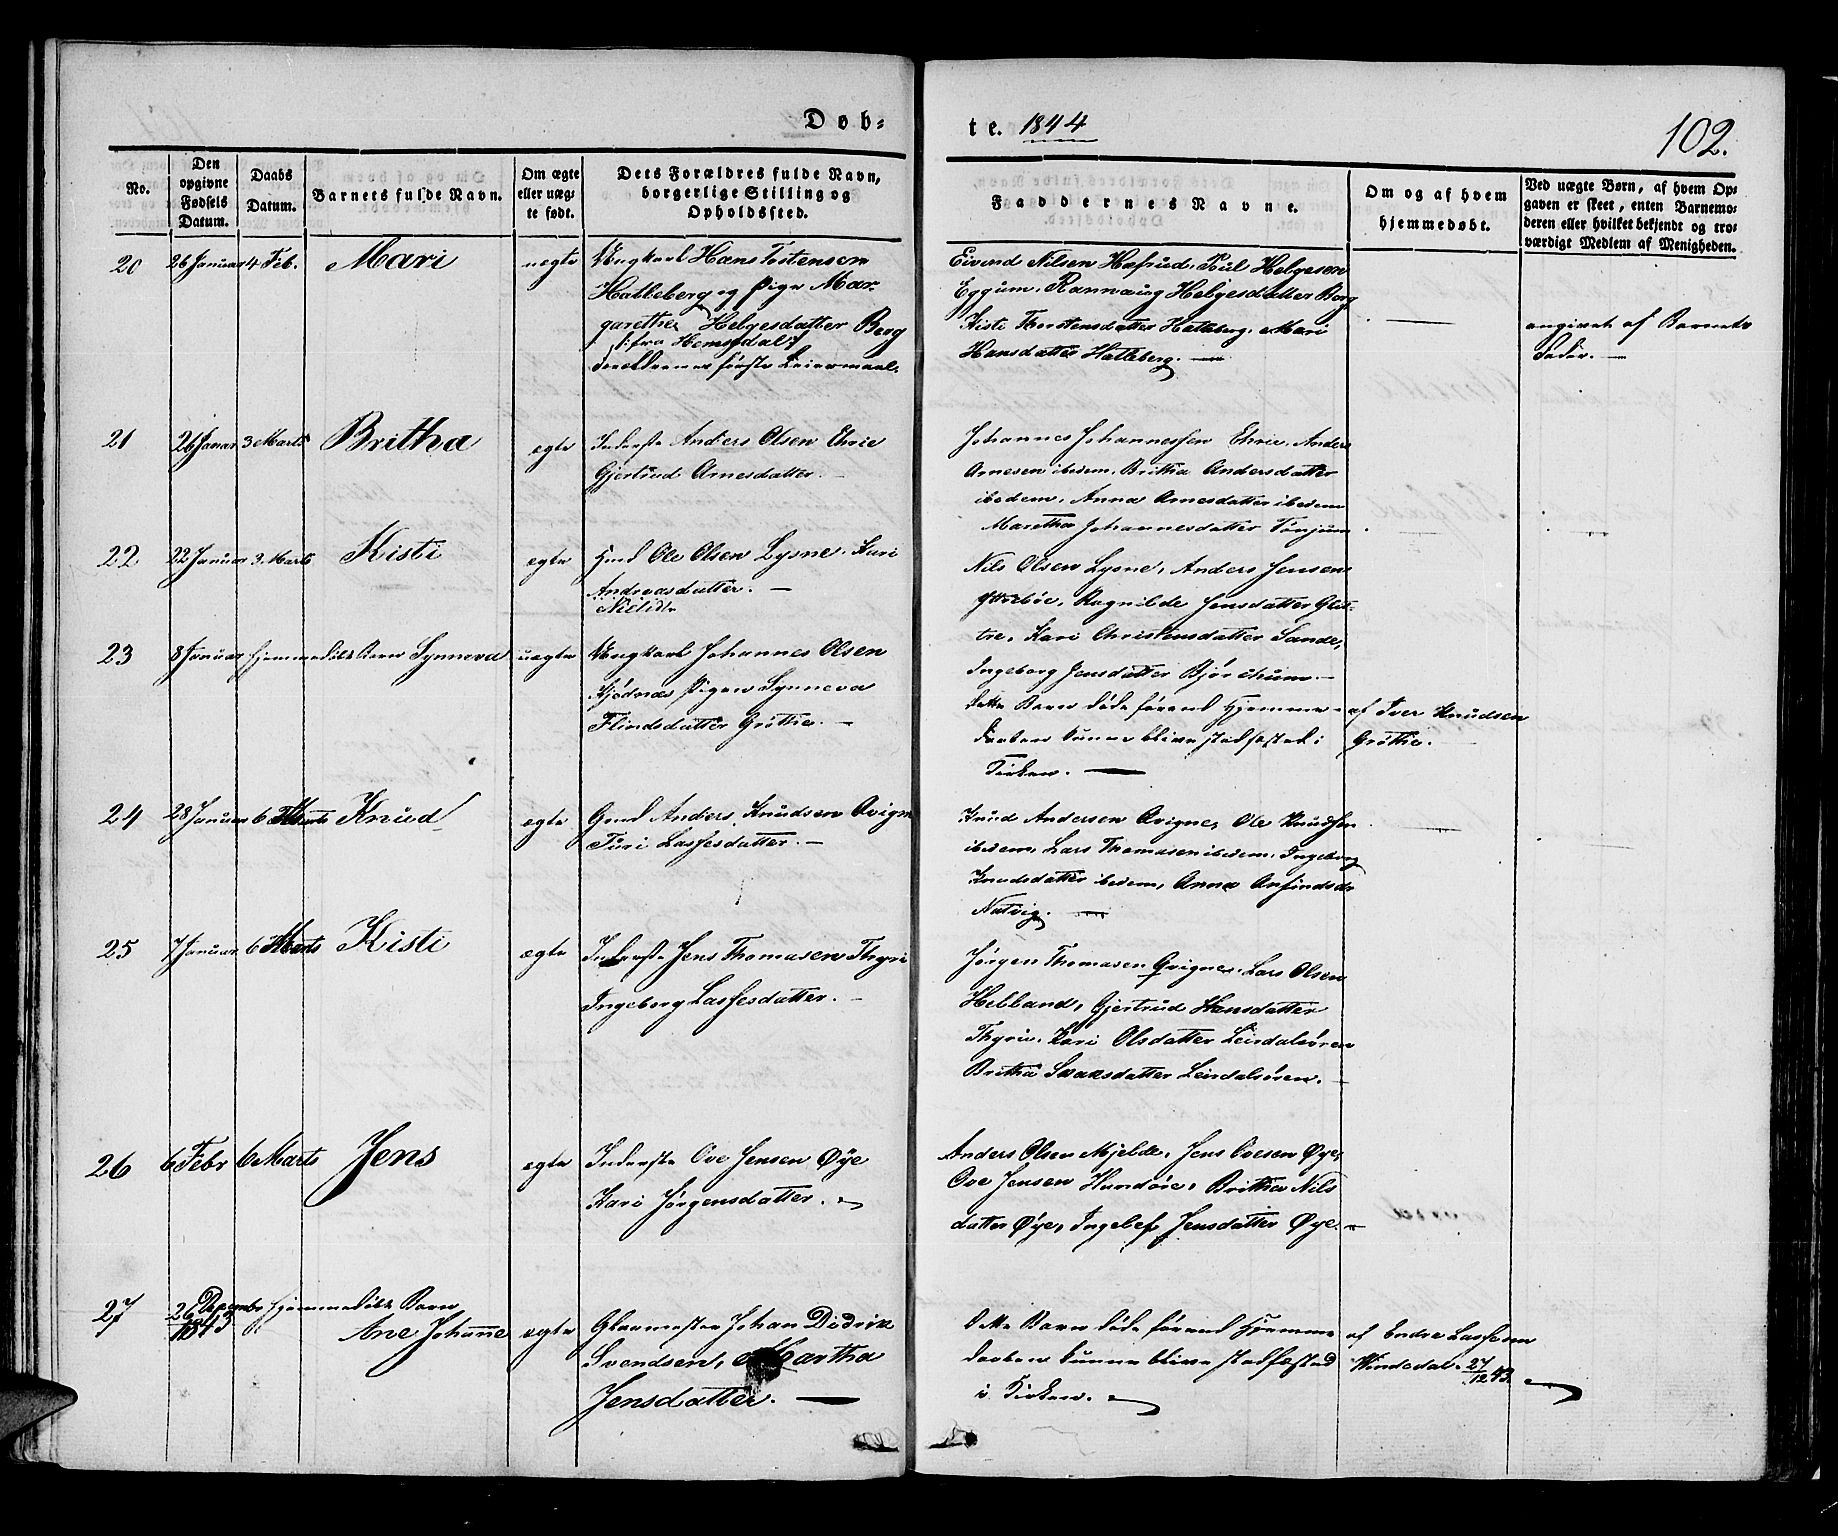 Døb-
te. 1844
102.
No.
Den opgivne Fødsels Datum.
Daabs Datum.
Barnets fulde Navn.
Om ægte eller uægte født.
Dets Forældres fulde Navn, borgerlige Stilling og Opholdssted.
Faddernes Navne.
Om og af hvem hjemmedøbt.
Ved uægte Børn, af hvem Opgaven er skeet, enten Barnemoderen eller hvilket bekjendt og troværdigt Medlem af Menigheden.
20 26 Januar 4 Feb. Mari uegte Ungkarl Hans Tostensen
Hatleberg og Pige Mar-
garethe Helgesdatter Berg
fra Hemsedal
Forældrenes første Leiermaal.
Eivend Nilsen Hæfrud, Poul Helgesen
Eggum, Rannaug Helgesdatter Borg
Kisti Thorstensdatter Hatleberg, Mari
Hansdatter Hatleberg.
angivet af Barnets
Fader.
21 26 Janar 3 Marts Britha egte Inderste Anders Olsen Ehrie
Gjertrud Arnesdatter.
Johannes Johannessen Ehrie, Anders
Arnesen ibedem, Britha Andersdatter
ibedem, Anna Arnesdatter ibedem
Maretha Johannesdatter Tønjum
22 22 Januar 3 Marts Kisti egte Gmd Ole Olsen Lysne, Kari
Andreasdatter.
Nils Olsen Lysne, Anders Jensen
Yttrebøe, Ragnilde Jensdatter Glet-
tre, Kari Christensdatter Sande,
Ingeborg Jensdatter Bjørchum.
23 8 Januar hjemmedøbt Barn Synneva uegte Ungkarl Johannes Olsen
Kjødnæs Pigen Synneva
Flindsdatter Grøthe.
Dette Barn døde førend Hjemme-
daaben kunne blive stadfæstet i
Kirken.
af Iver Knudsen
Grøthe.
24 28 Januar 6 Marts Knud egte Gmd Anders Knudsen Qvigne
Turi Lassesdatter.
Knud Andersen Qvigne, Ole Knudsen
ibedem, Lars Thomasen ibedem, Ingeborg
Knudsdatter ibedem, Anna Anfindsdr
Natvig.
25 7 Januar 6 Marts Kisti egte Inderste Jens Thomasen Thyri
Ingeborg Lassesdatter.
Jørgen Thomasen Qvigne, Lars Olsen
Helland, Gjertrud Hansdatter
Thyrie, Kari Olsdatter Leirdalsøren
Britha Svansdatter Leirdalsøren.
26 6 Febr 6 Marts Jens egte Inderste Ove Jensen Øye
Kari Jørgensdatter.
Anders Olsen Mjelde, Jens Ovesen Øye,
Ove Jensen Hundøre, Britha Nils
datter Øye, Ingelef Jensdatter Øye.
27 26 Decembr 1843 hjemmedøbt Barn
Ane Johanne egte Glarmester Johan Didrik
Svendsen, Martha
Jensdatter.
Dette Barn døde førend Hjemme
daaben kunne blive stadfæsted
i Kirken.
af Endre Lassesen
Windedal. 27/12 43.